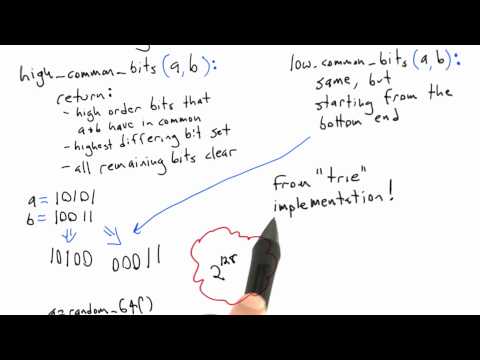 high_common_bits (a,b):
return:
- high order bits that
a+b have in common
- highest differing bit set
- all remaining bits clear
low_common_bits (a,b):
same, but
starting from the
bottom end
a = 10101
b = 10011
10100 00011
from "trie"
implementation!
2^128
a=random_64()